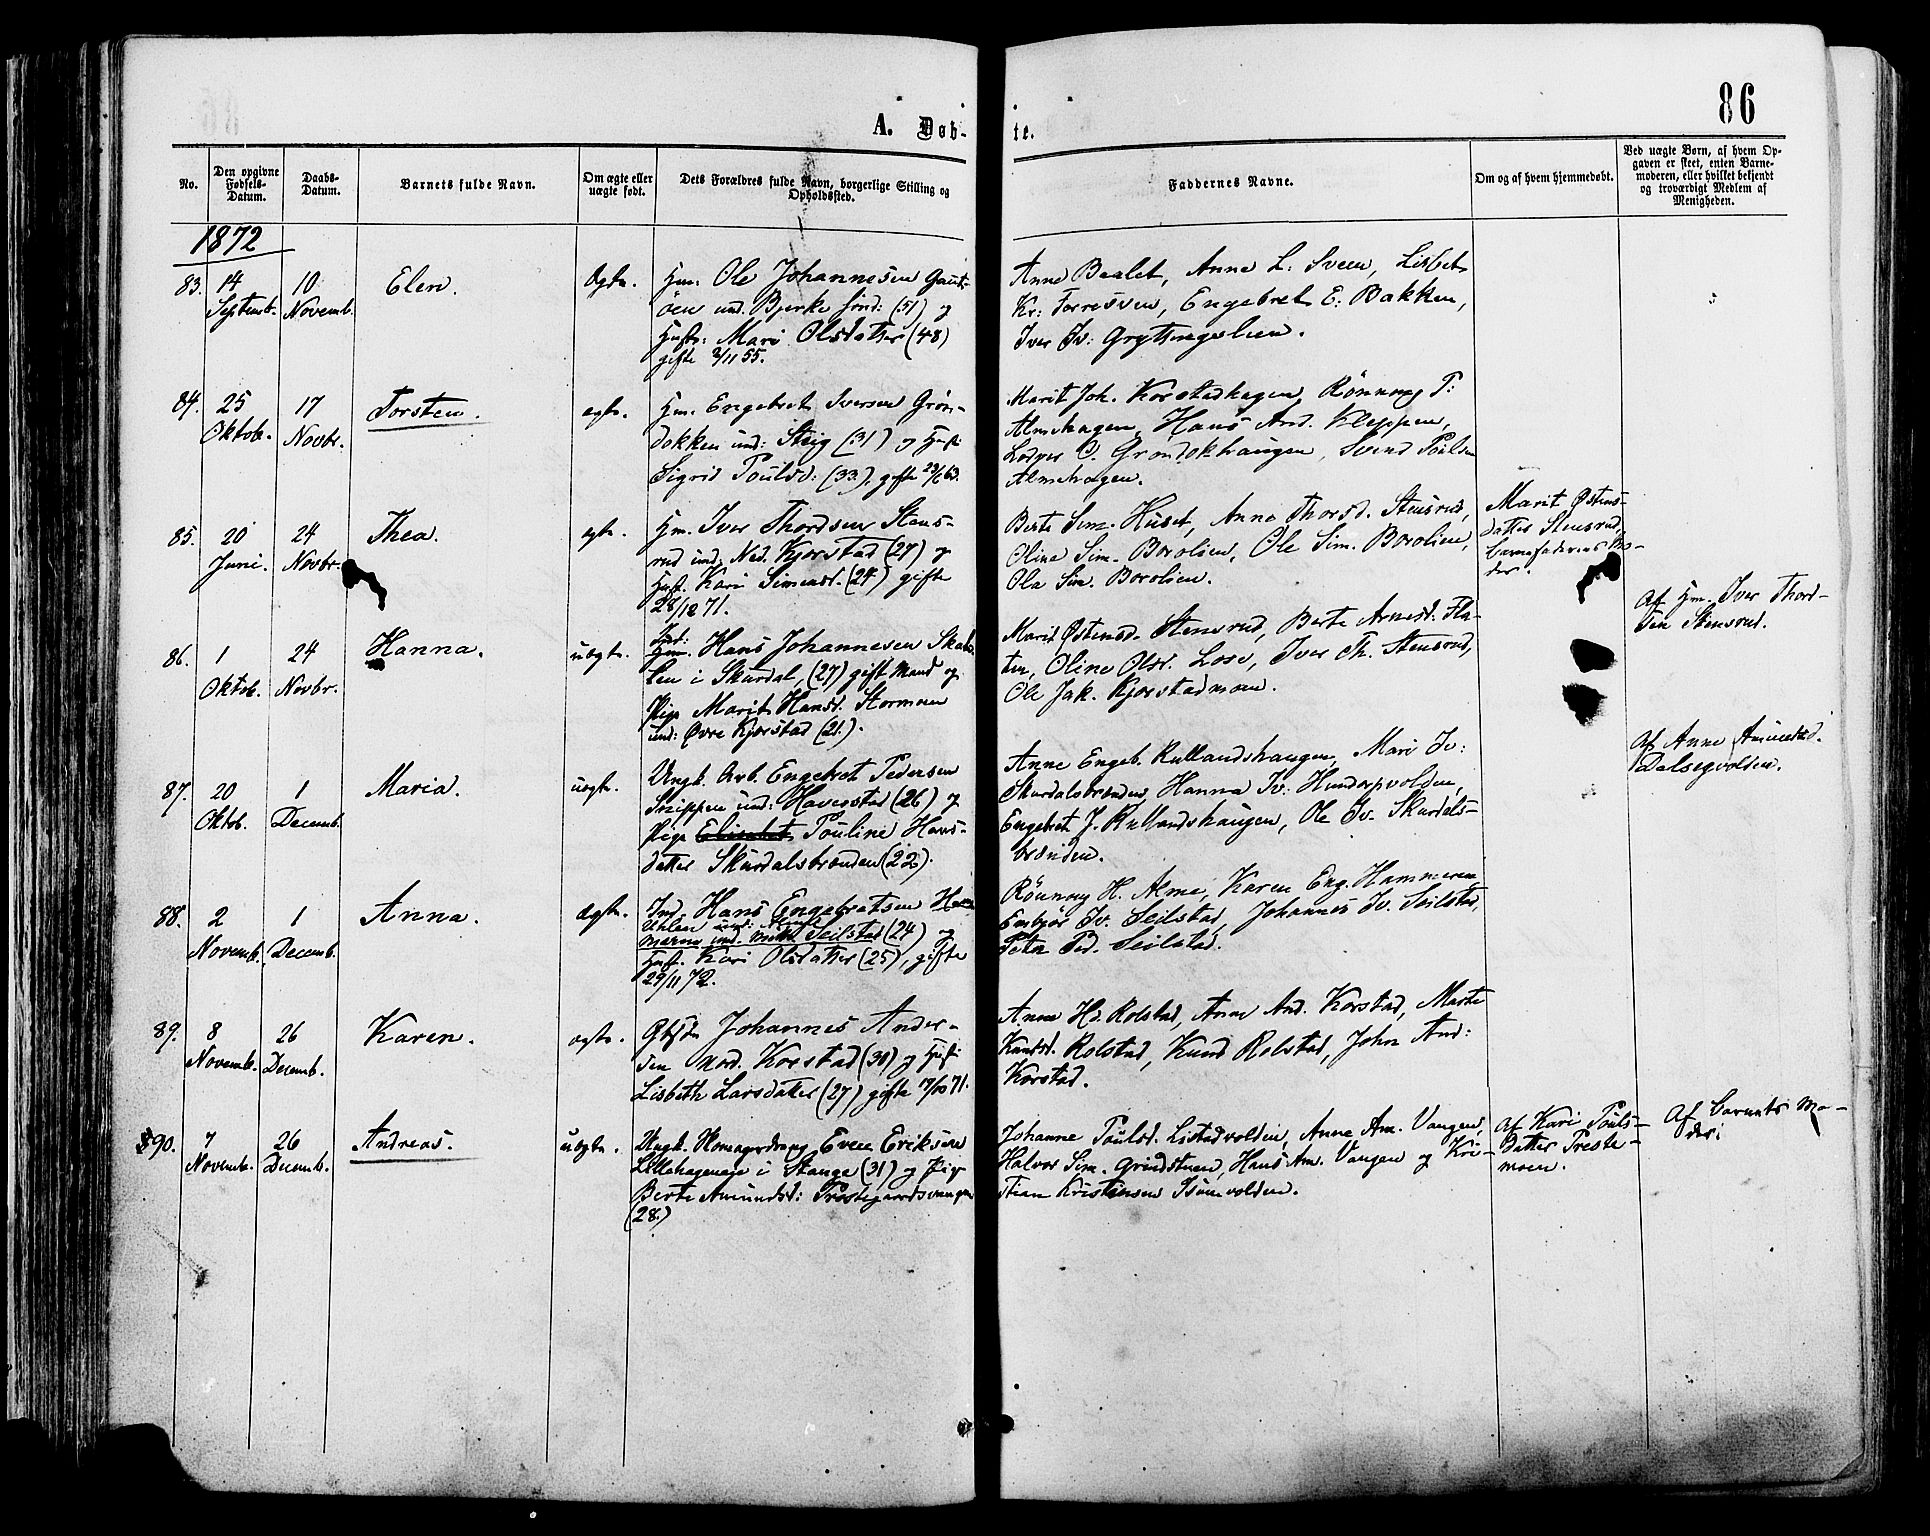 86
A. Døb-
te.
No.
Den opgivne
Fødsels-
Datum.
Daabs-
Datum.
Barnets fulde Navn.
Om ægte eller
uægte født.
Dets Forældres fulde Navn, borgerlige Stilling og
Opholdssted.
Faddernes Navne.
Om og af hvem hjemmedøbt.
Ved uægte Børn, af hvem Op-
gaven er skeet, enten Barne-
moderen, eller hvilket bekjendt
og troværdigt Medlem af
Menigheden.
1872
83. 14 10 Elen. Ægte. Hm. Ole Johannesen
Septemb. Novemb. öen und. Bjerke (51) og
Hustr: Mari Olsdatter (48)
gifte 2/11 55.
Anne Baalet, Anne L: Sveen, Lisbet
Kr: Engebret E: Bakken,
Iver Iv: Gryttingslien.
84. 25 17 Torsten. ægte. Hm. Engebret Iversen Grön-
Oktob. Novbr. dokken und: Steig (31) og Hust:
Sigrid Poulsd: (33), gifte 23/6 63.
Marit Joh. Korstadhagen, Rönnoug P:
Almehagen, Hans And. Kleppen,
O. Grondokhaugen, Svend Poulsen
Almehagen.
85. 20 24 Thea. ægte. Hm. Iver Thordsen Stens-
Juni. Novbr. rud und. Ned. Kjorstad (27) og
Hust. Kari Simensd. (24) gifte
28/12 71.
Berte Sim. Huset, Anne Thorsd. Stensrud,
Oline Sim. Borolien, Ole Sim. Borolien,
Ola Sim. Borolien.
Marit Østens-
datter Stensrud,
barnefaderens Mo-
der.
86. 1 24 Hanna. uægte. Hans Johannesen
Oktob. Novbr. len i Skurdal, (27) gift Mand og
Pige Marit Hansd. Stormoen
und: Øvre Kjorstad (21).
Marit Østensd. Stensrud, Berte Arnesd. Fla-
ten, Oline Olsd. Lose, Iver Th. Stensrud,
Ole Jak. Kjorstadmoen.
Af Hm. Iver Thord-
sen Stensrud.
87. 20 1 Maria. uægte. Ungk. Arb. Engebret Pedersen
Oktb. Decemb. Snippen und: Haverstad (26) og
Pige Elisabet Pouline Hans-
datter Skurdalsbrænden (22).
Anne Engeb. Rullandshaugen, Mari Iv:
Skurdalsbrænden, Hanna Iv: Hundorpvolden,
Engebret J. Rullandshaugen, Ole Iv. Skurdals-
brænden.
Af Anne
Dalsegvolden.
88. 2 1 Anna. Ægte. Ind. Hans Engebretsen
Novemb. Decemb. Seilstad (24) og
Hust. Kari Olsdatter (25), gifte
29/11 72.
Rönnoug H. Alme, Karen Eng. Hammeren
Embjör Iv. Seilstad, Johannes Iv. Seilstad,
Peter Ped. Seilstad.
89. 8 26 Karen. ægte. JohannesAnder-
Novemb. Decemb. sen nord. Korstad (30) og Hust:
Lisbeth Larsdatter (27) gifte 7/10 71.
Anne Hd. Rolstad, Anne And. Korstad, Marte
Knudsd. Rolstad, Knud Rolstad, John And:
Korstad.
90. 7 26 Andreas. uægte. Ungk. Even Eriksen
Novemb. Decemb. Lillehagen i Stange (31) og Pige
Berte Amundsd: Prestegaardsvangen
(28.)
Johanne Poulsd. Listadvolden, Anne Am. Vangen,
Halvor Sim. Grindstuen, Hans Am. Vangen og Kri-
stian Kristensen
Af Kari Pouls-
datter Preste-
moen.
Af Barnets Mo-
der.